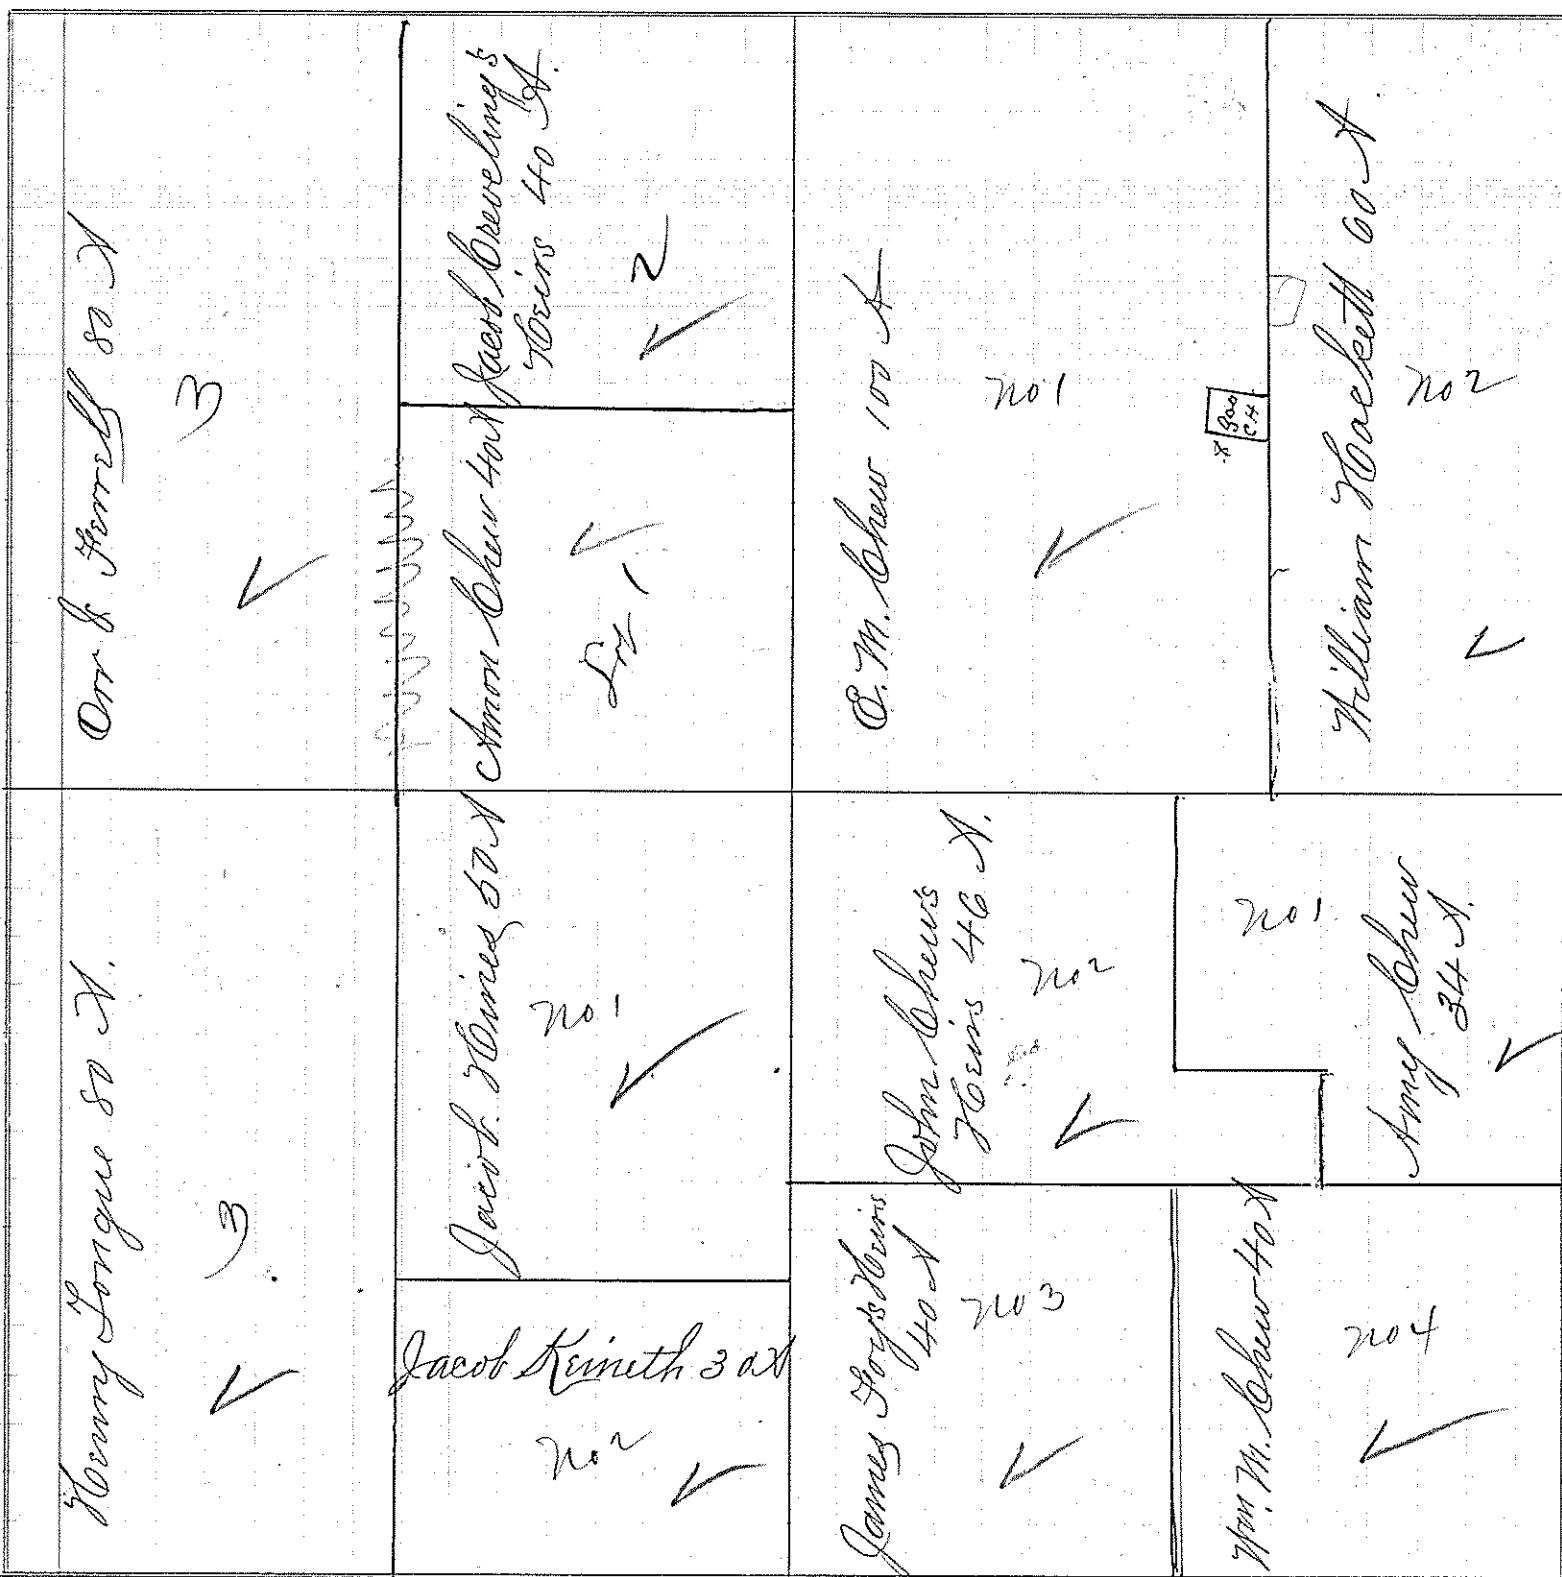 Orr & Ferrell 80 A
3
Jacob Creveling's
Heirs 40 A.
2
Amon Chew 40 A
Lot 1
E. M. Chew 100 A
no 1
William Hackett 60 A
no 2
Henry Longue 80 A.
3
Jacob. Hines 50 A
no 1
Jacob Keineth 30 A
no 2
John Chew's
Heirs 46 A.
no 2
no 1
Amy Chew
34 A.
James Foy's Heirs
40 A
no 3
Wm. M. Chew 40 A
no 4